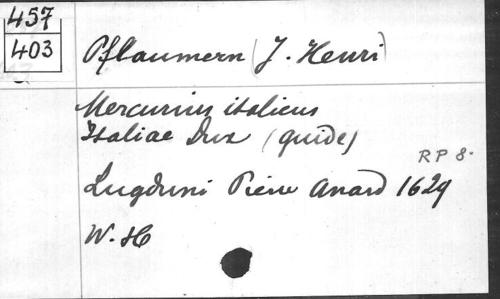 457
403
Pflaumern (J. Henri)
Mercurius italicus
Italiae Dux (guide)
RP 8.
Lugduni Pierre Anard 1629
W. H